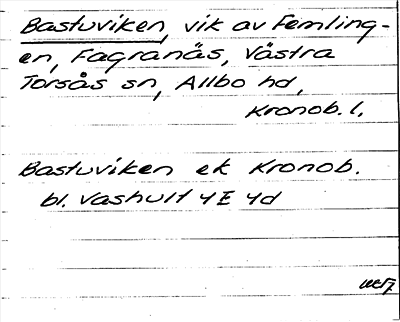 Bastuviken, vik av Femling-
en, Fagranäs, Västra
Torsås sn, Allbo hd,
Kronob. l.
Bastuviken ek Kronob.
bl. Vashult 4E 4d